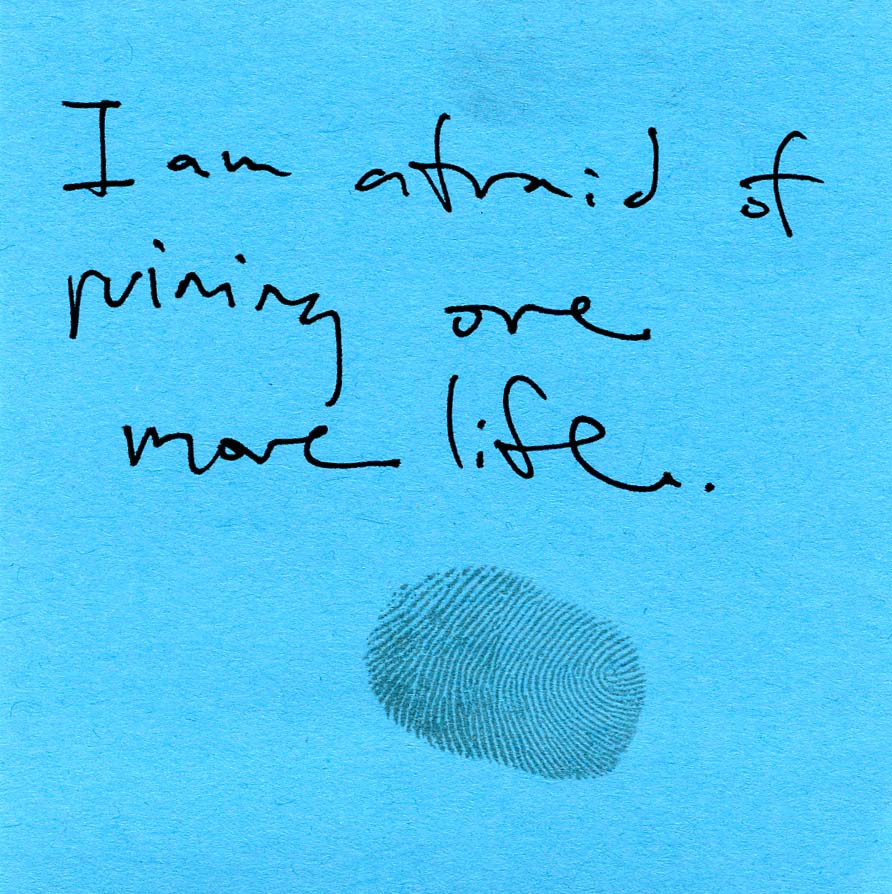 I am afraid of
ruining one
more life.